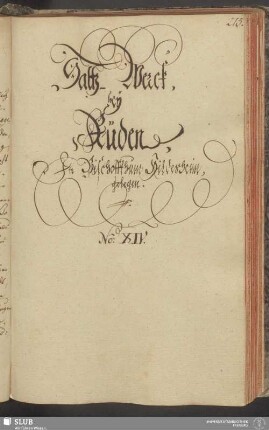 213.
Saltz-Werck,
bey
Rüden,
Im Bischoffthum Hildesheim,
gelegen.
No: XIV.
SLUB